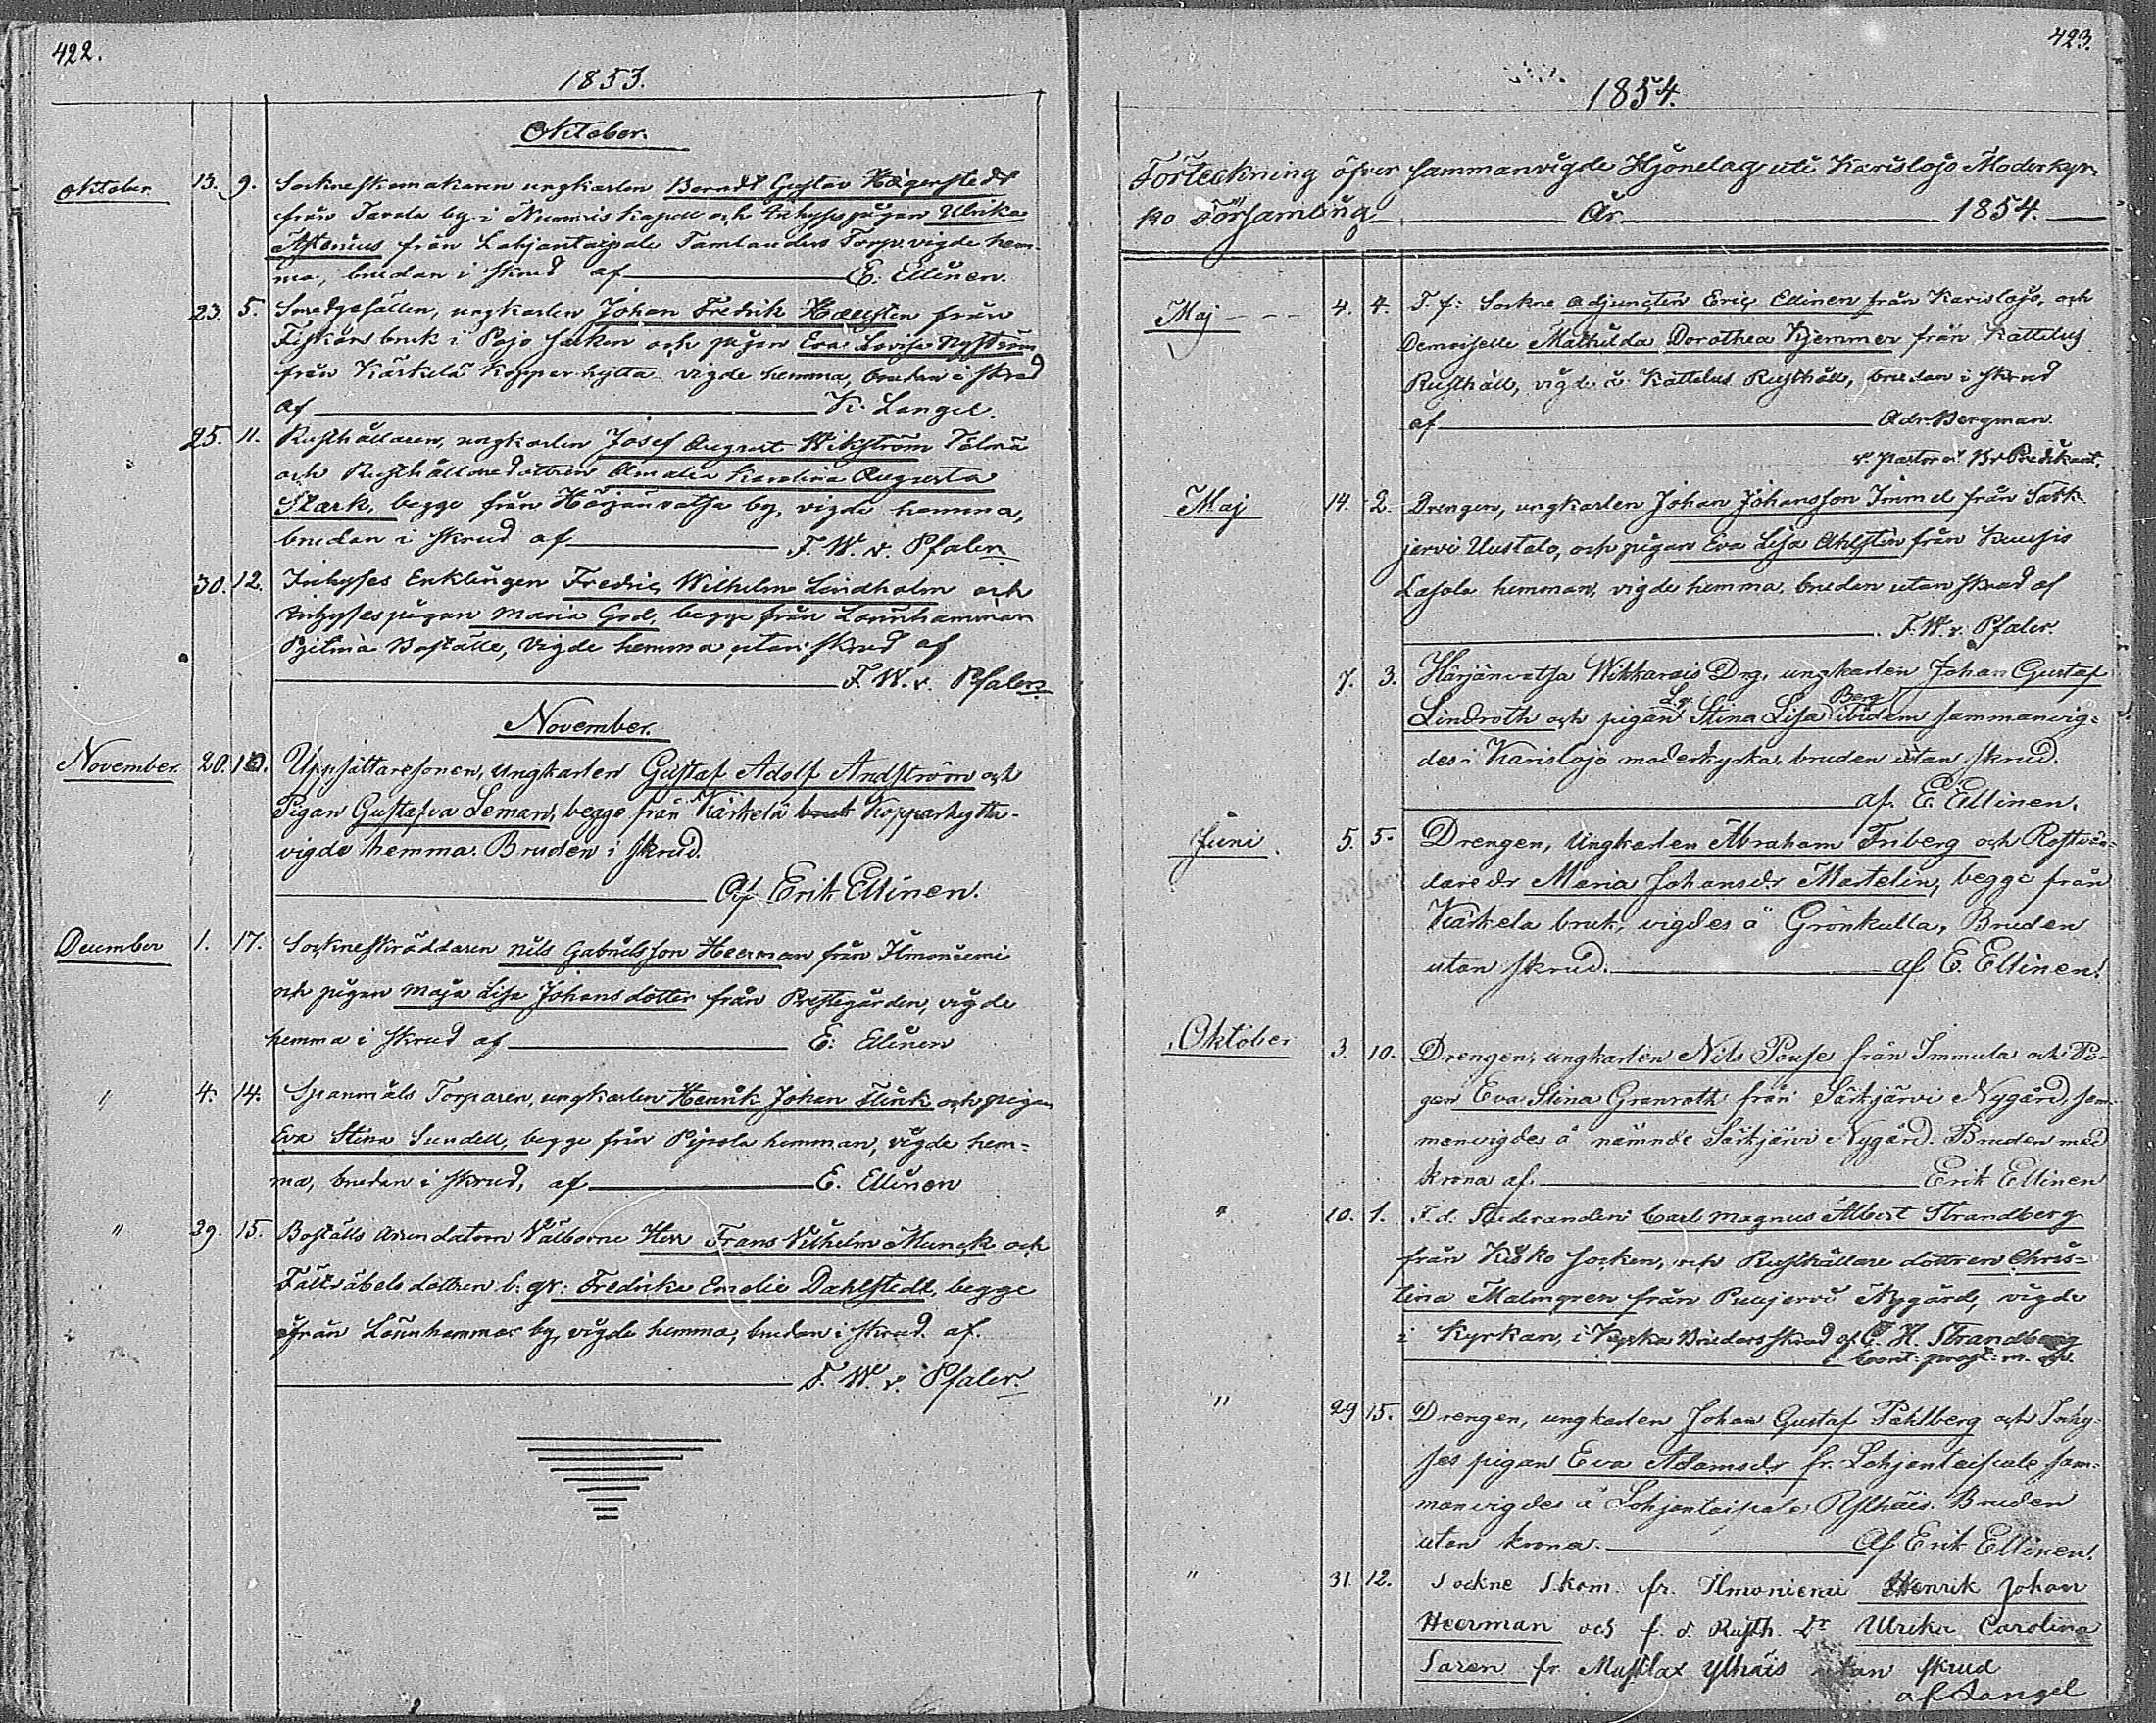 422.
1853.
Oktober.
Oktober. 13. 9. Sockneskomakaren ungkarlen Berndt Gustav Hägerstedt
från Tavola by i Nummis Kapell och Inhyses pigan Ulrika
Astenius från Lohjantaipale Tamlanders Torp. vigde hem-
ma, bruden i skrud af E. Ellinen.
23. 5. Smedgesällen, ungkarlen Johan Fredrik Hæggsten från
Fiskars bruk i Pojo socken och pigan Eva Lovisa Nyström
från Kärkelä Kopparhytta vigde hemma, bruden i skrud
af K. Langel.
25. 11. Rusthållaren, ungkarlen Josef August Wikström Tölmä
och Rusthållaredottren Amalia Karolina Augusta
Stark, begge från Härjänvatsa by, vigde hemma,
bruden i skrud af F. W. v. Pfaler.
30. 12. Inhyses Enklingen Fredric Wilhelm Lindholm och
Inhysespigan Maria God, begge från Lönnhammar
Boställe, vigde hemma, utan skrud af
F. W. v. Pfaler.
November.
November. 20. 10. Uppsittaresonen, ungkarlen Gustaf Adolf Andström och
Pigan Gustafva Leman, begge från Kärkelä bruk Kopparhytta.
vigde hemma. Bruden i skrud.
Af Erik Ellinen.
December 1. 17. Sockneskräddaren Nils Gabrielsson Heerman från Ilmoniemi
och pigan Maja Lisa Johansdotter från Prestegården, vigde
hemma i skrud af E. Ellinen
" 4. 14. Spanmåls Torparen, ungkarlen Henrik Johan Flink och pigan
Eva Stina Sundell, begge från Pipola hemman, vigde hem-
ma, bruden i skrud, af E. Ellinen
" 29. 15. Boställs Arrendatorn Välborne Herr Frans Vilhelm Munck och
Fältväbels dottren Fredrika Emelie Dahlstedt, begge
från Lönnhammar by, vigde hemma, bruden i skrud af
F. W. v. Pfaler.
423.
1854.
Förteckning öfver sammanvigde Hjonelag uti Karislojo Moderkyr-
ko Församling År 1854.
Maj 4. 4. T. f. Sockne Adjuncten Eric Ellinen från Karislojo, och
Demoiselle Mathilda Dorothea Kjemmer från Kattelus
Rusthåll, vigde å Kattelus Rusthåll, bruden i skrud
af Adr. Bergman
v. pastor o. Br Predikant.
Maj 14. 2. Drengen, ungkarlen Johan Johansson Immel från Särk-
jervi Uustalo, och pigan Eva Lisa Ahlsten från Kuusis
Lasola hemman, vigde hemma, bruden utan skrud af
F. W. v. Pfaler.
7. 3. Härjänvatsa Wikkarais Drg. ungkarlen Johan Gustaf
Lindroth och pigan Stina Lisa Berg ibidem sammanvig-
des i Karislojo moderkyrka, bruden utan skrud.
af E. Ellinen.
Juni. 5. 5. Drengen, Ungkarlen Abraham Friberg och Rostvän-
dare dr Maria Johansdr Martelin, begge från
Kärkela bruk, vigdes å Grönkulla, Bruden
utan skrud. af E. Ellinen.
Oktober 3. 10. Drengen, ungkarlen Nils Pouse från Immula och Pi-
gan Eva Stina Granroth från Särkjärvi Nygård, sam-
manvigdes å nämnde Särkjärvi Nygård. Bruden med
krona af Erik Ellinen
" 10. 1. F. d. Studeranden Carl Magnus Albert Strandberg
från Kisko socken, och Rusthållare dottren Chris-
tina Malmgren från Puujervi Nygård, vigde
i Kyrkan, i Kyrko Brudens skrud af C. H. Strandberg
Cont: prost: m.
" 29 15. Drengen, ungkarlen Johan Gustaf Pahlberg och Inhy-
ses pigan Eva Adamsdr fr. Lohjantaipale sam-
manvigdes å Lohjantaipale Ylhäis. Bruden
utan krona. Af Erik Ellinen.
" 31. 12. Sockne Skom. fr. Ilmoniemi Henrik Johan
Heerman och f. d. Rusth. Dr Ulrika Carolina
Saren fr. Mustlax Ylhäis utan skrud
af Langel